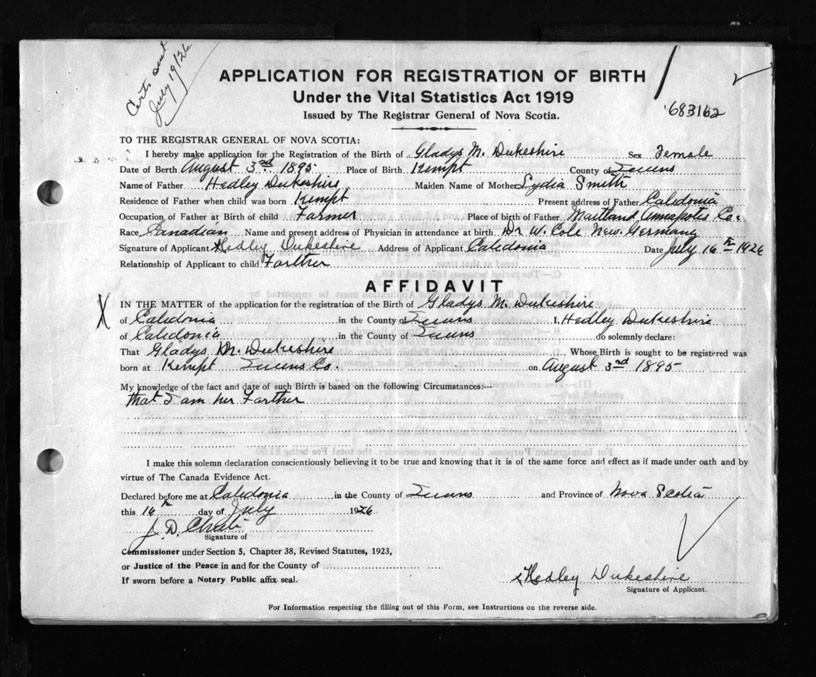 Certs sent
July 19/26
APPLICATION FOR REGISTRATION OF BIRTH
Under the Vital Statistics Act 1919
Issued by The Registrar General of Nova Scotia.
683162
TO THE REGISTRAR GENERAL OF NOVA SCOTIA:
I hereby make application for the Registration of the Birth of Gladys M. Dukeshire Sex Female
Date of Birth August 3rd 1895 Place of Birth Kempt County of Queens
Name of Father Hedley Dukeshire Maiden Name of Mother Lydia Smith
Residence of Father when child was born Kempt Present address of Father Caledonia
Occupation of Father at Birth of child Farmer Place of birth of Father Maitland Annapolis Co.
Race Canadian Name and present address of Physician in attendance at birth Dr W. Cole New Germany
Signature of Applicant Hedley Dukeshire Address of Applicant Caledonia Date July 16th 1926
Relationship of Applicant to child Farther
AFFIDAVIT
X IN THE MATTER of the application for the registration of the Birth of Gladys M. Dukeshire
of Caledonia in the County of Queens I, Hedley Dukeshire
of Caledonia in the County of Queens do solemnly declare:
That Gladys M. Dukeshire Whose Birth is sought to be registered was
born at Kempt Queens Co. on August 3rd 1895
My knowledge of the fact and date of such Birth is based on the following Circumstances:—
that I am her Farther
I make this solemn declaration conscientiously believing it to be true and knowing that it is of the same force and effect as if made under oath and by
virtue of The Canada Evidence Act.
Declared before me at Caledonia in the County of Queens and Province of Nova Scotia
this 16th day of July 1926
J. D.
Signature of
Commissioner under Section 5, Chapter 38, Revised Statutes, 1923,
or Justice of the Peace in and for the County of
If sworn before a Notary Public affix seal.
x Hedley Dukeshire
Signature of Applicant.
For Information respecting the filling out of this Form, see Instructions on the reverse side.